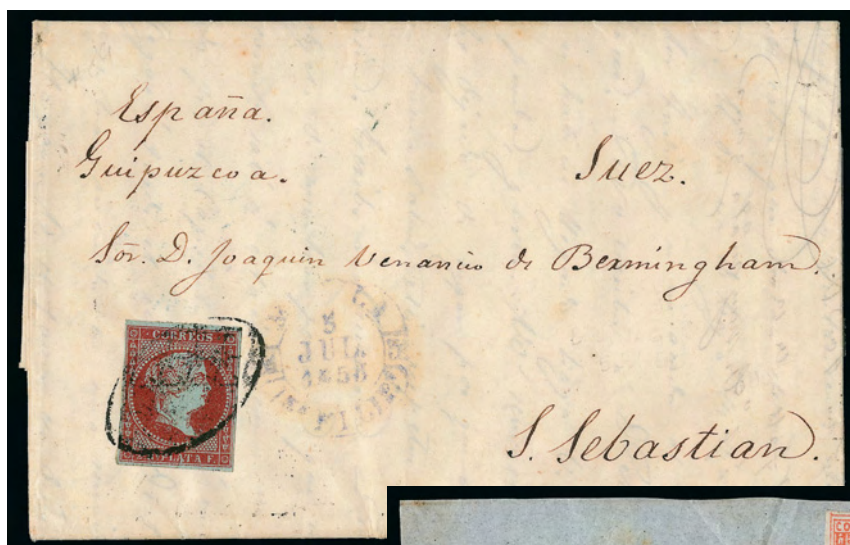 España.
Guipuzcoa.
Suez.
Sor. D. Joaquin Venancio de Bermingham.
CORREOS
PLATA F.
5
JUL.
S. Sebastian.
CO